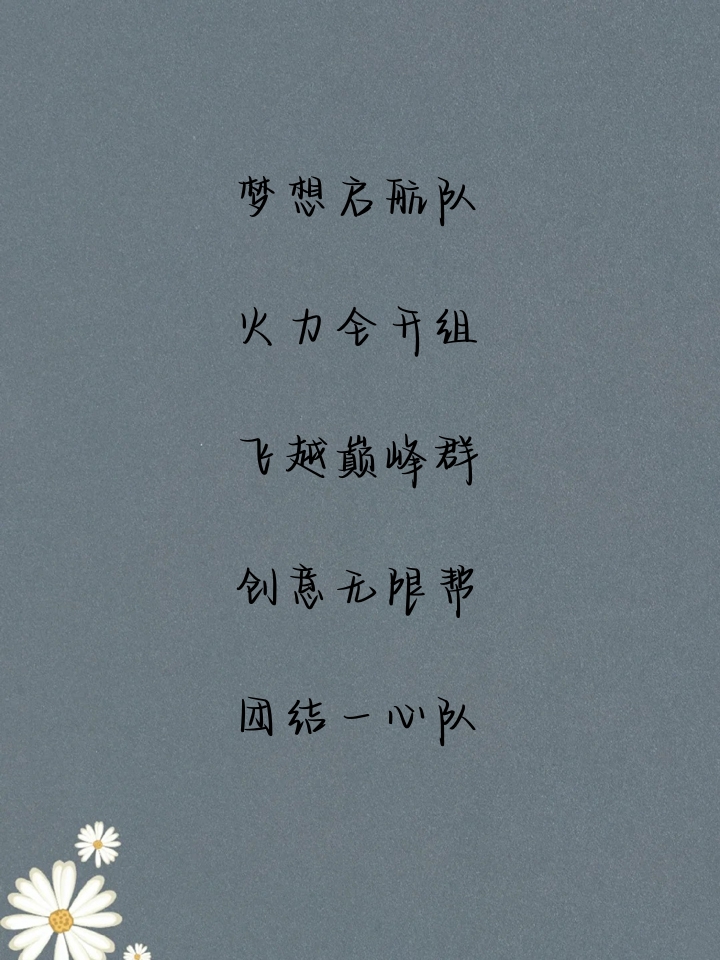 梦想启航队
火力全开组
飞越巅峰群
创意无限帮
团结一心队